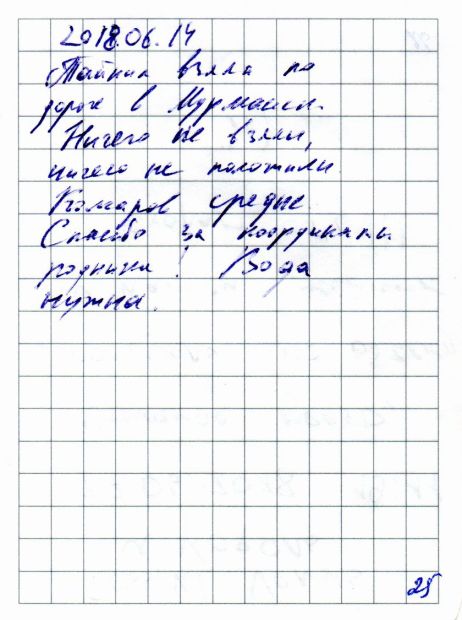 2018.06.14
Тайник взяли по
дороге в Мурманск.
Ничего не взяли,
ничего не положили
Комаров средне.
Спасибо за координаты
родника! Вода
нужна.
25